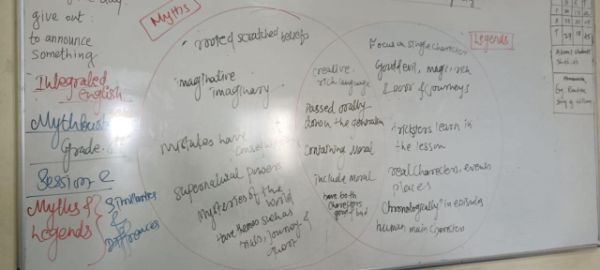 give out :
to announce
something
Integrated
english
Grade
Session 2
Myths &
Legends
Similarities
&
Differences
Myths
rooted scratched beliefs
imaginative
imaginary
mistakes have
supernatural powers
mysteries of the
world
have heroes such as
trials, journey &
creative
rich language
Passed orally
down the generation
Containing Moral
include moral
have both
characters
good & bad
Legends
Focus on single character
Good & evil, magic, rich
Love & journeys
tricksters learn in
the lesson
real characters, events
places
chronologically in episodes
human main characters